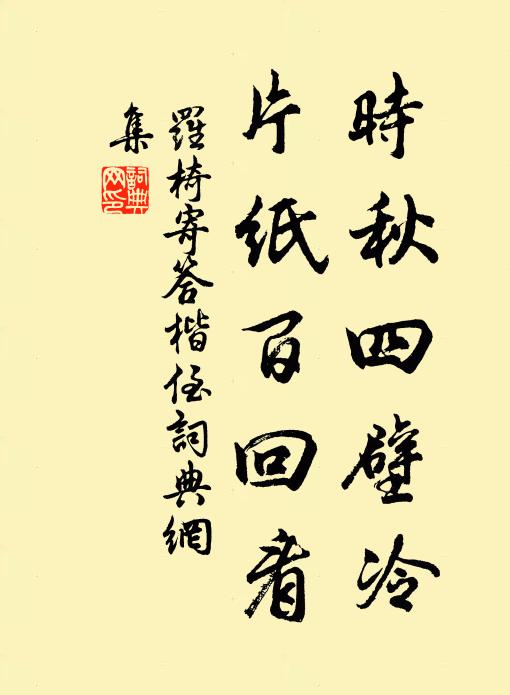 時秋四壁冷
片紙百回看
羅椅寄答楷侄詞典網
集
詞典網印